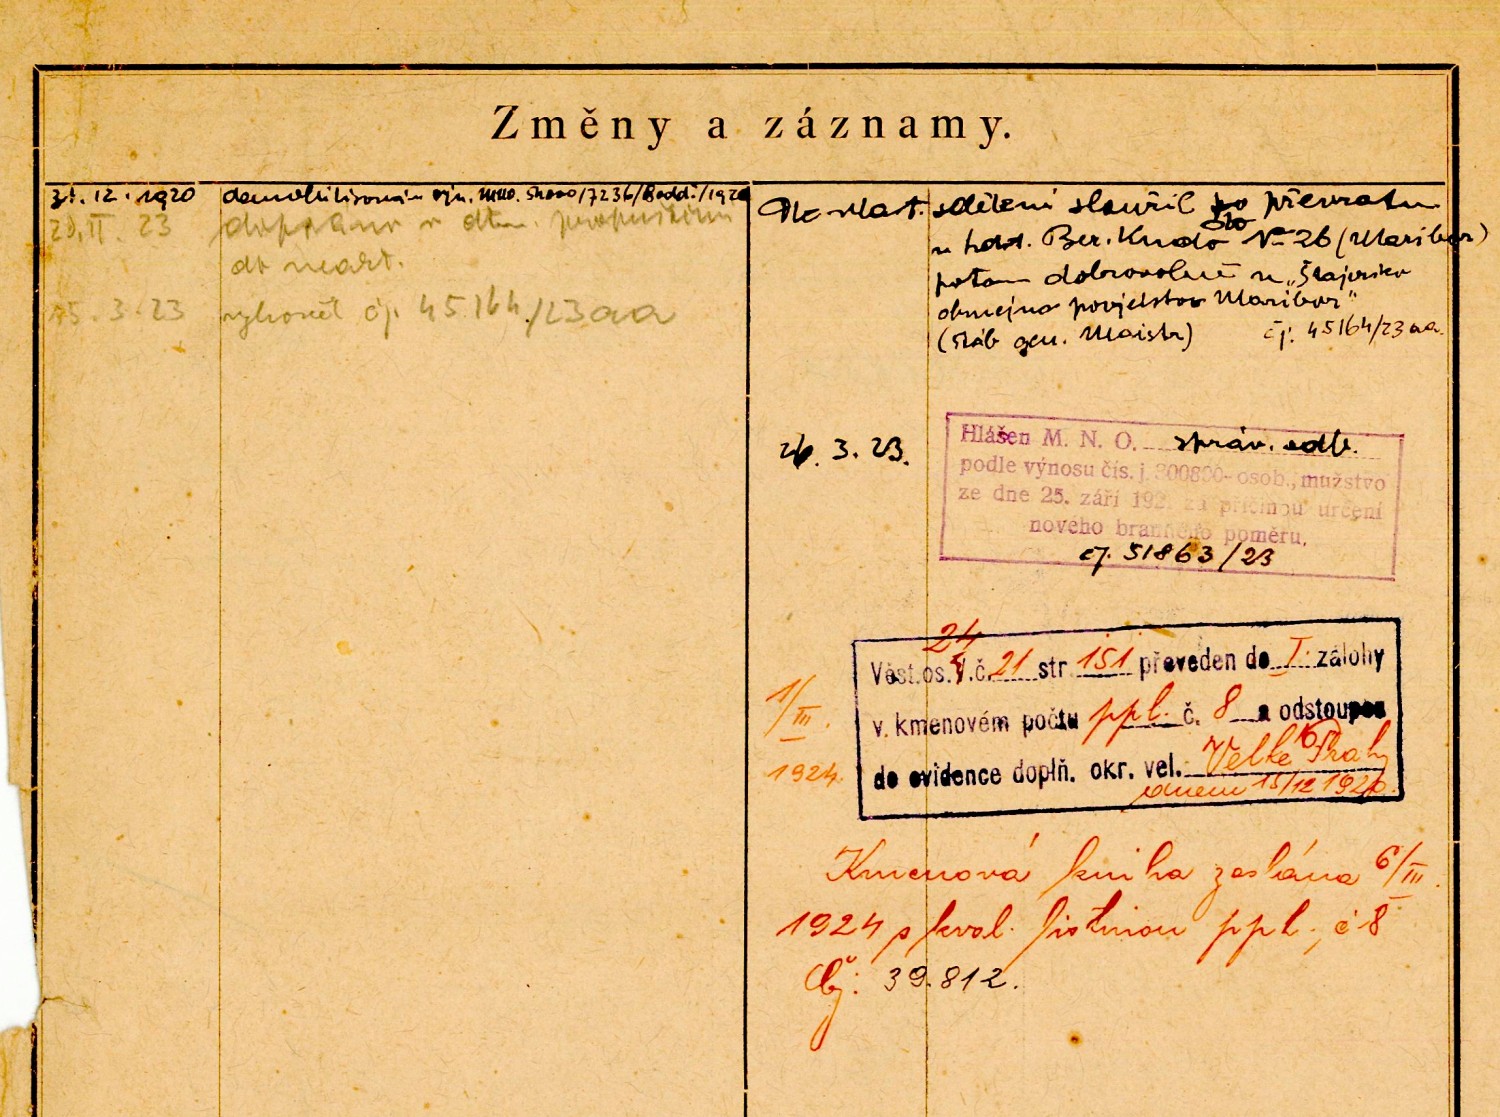 Změny a záznamy.
31. 12. 1920 demobilisován výn. MNO. /7236/8 odd./1920
20. II. 23 dopsáno o dtu propuštění
do
15. 3. 23 čj. 45.164./23 aa
Dle vlast. sdělení sloužil po převratu
u Ber. Kudo No 26 (Maribor)
potom dobrovolně u „Štajersko
obmejno povjelstvo Maribor“
(štáb gen. Maistr) čj. 45164/23 aa.
26. 3. 23. Hlášen M. N. O. správ. odb.
podle výnosu čís. j. 300800-osob., mužstvo
ze dne 25. září 192. za příčinou určení
nového branného poměru.
čj. 51863/23
24
Věst. os. V. č. 21 str 151 převeden do I. zálohy
1/III. 1924. v kmenovém počtu ppl. č. 8 a odstoupen
do evidence doplň. okr. vel. Velké Prahy
dnem 15/12 1920.
Kmenová kniha zaslána 6/III.
1924 s kval. listinou ppl. č 8
Čj: 39.812.